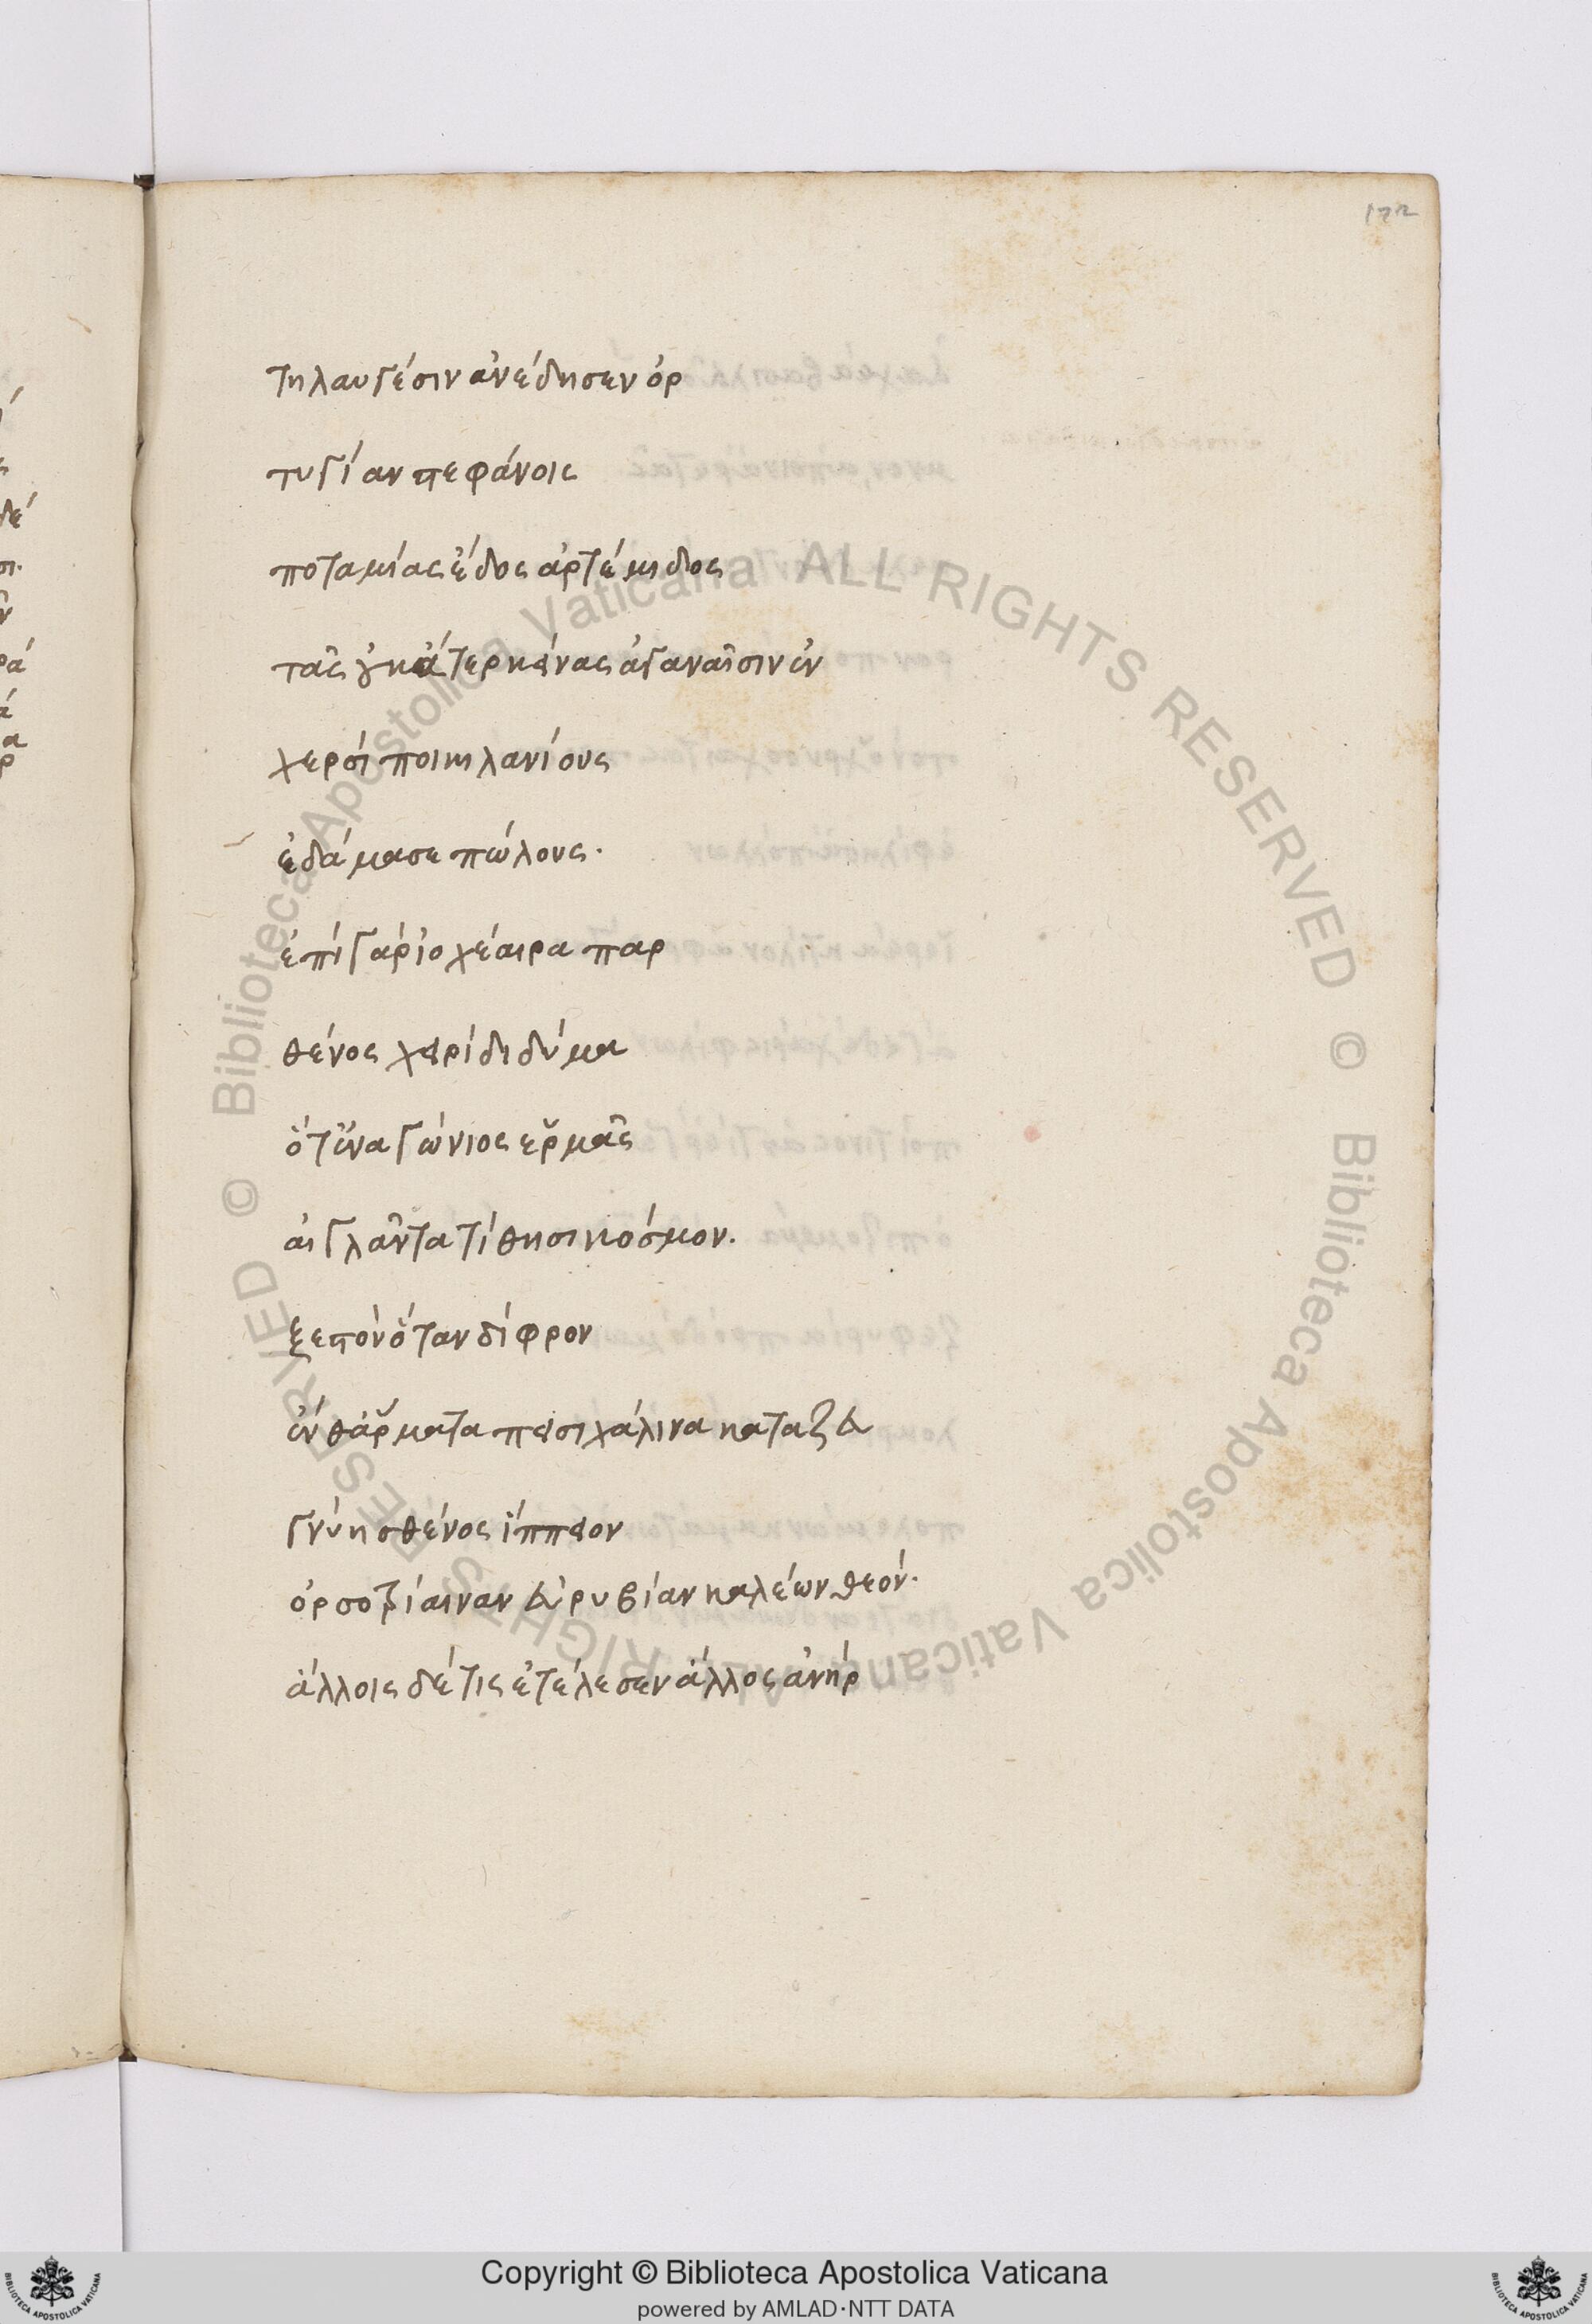 172
τηλαυγέσιν ἀνέδησεν ὀρ
τυγίαν στεφάνοις
ποταμίας ἕδος ἀρτέμιδος
τᾶς οὐκ ἄτερ κείνας ἀγαναῖσιν ἐν
χερσὶ ποικιλανίους
ἐδάμασε πώλους.
ἐπὶ γὰρ ἰοχέαιρα παρ
θένος χερὶ διδύμα
ὅ τ' ἐναγώνιος ἑρμᾶς
αἰγλᾶντα τίθησι κόσμον.
ξεστὸν ὅταν δίφρον
ἐν θ' ἅρματα πεισιχάλινα καταζευ
γνύη σθένος ἵππειον
ὀρσοτρίαιναν εὐρυβίαν καλέων θεόν.
ἄλλοις δέ τις ἐτέλεσεν ἄλλος ἀνὴρ
© Biblioteca Apostolica Vaticana ALL RIGHTS RESERVED © Biblioteca Apostolica Vaticana ALL RIGHTS RESERVED
Copyright © Biblioteca Apostolica Vaticana
powered by AMLAD·NTT DATA
BIBLIOTECA APOSTOLICA VATICANA
BIBLIOTECA APOSTOLICA VATICANA